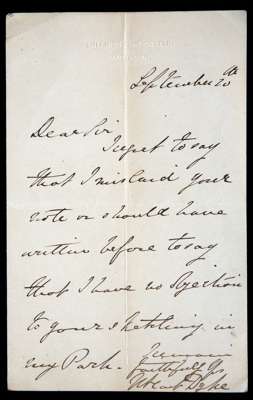 September 20th
Dear Sir
I regret to say
that I mislaid your
note or should have
written before to say
that I have no objection
to your sketching in
my Park.
I remain
faithfully yrs
Dyke